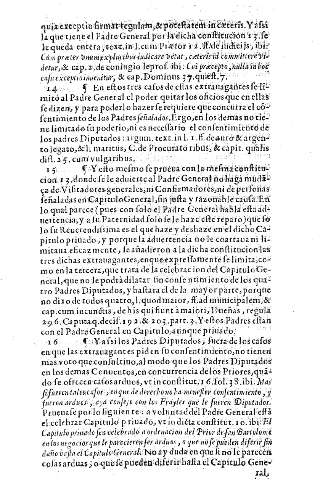 quia exceptio firmat regulam, & potestatem in cæteris. Y assi
la que tiene el Padre General por la dicha constitucion 17. se
le queda entera, text. in l. cum Prætor 12. ff. de iudicijs, ibi:
Cum prætor unum ex pluribus iudicare vetat, cæteris id committere videtur,
& cap. 2. de coniugio leprof. ibi: Cui præcepto, nulla in hoc
casu exceptio inuenitur, & cap. Dominus 37. quæst. 7.
14 ¶ En estos tres casos de ellas extrauagantes se limitò
al Padre General el poder quitar los oficios que en ellas
se dizen, y para poderlo hazer se requiere que concurra el consentimiento
de los Padres señalados. Ergo, en los demas no tiene
limitado su poderio, ni es necessario el consentimiento de
los padres Diputados: argum. text. in l. 1. ff. de auro & argento
legato, & l. maritus, C. de Procuratoribus, & capit. qualis
dist. 25. cum vulgaribus.
15 ¶ Y esto mesmo se prueua con la mesma constitucion
12, donde se le aduierte al Padre General no haga mudãça
de Visitadores generales, ni Confirmadores, ni de personas
señaladas en Capitulo General, sin justa y razonable causa. En
lo qual parece (pues con solo el Padre General habla esta aduertencia,
y a su Paternidad solo se le haze este reparo) que solo
su Reuerendissima es el que haze y deshaze en el dicho Capitulo
priuado, y porque la aduertencia no le coartaua ni limitaua
eficazmente, le añadieron a la dicha constitucion las
tres dichas extrauagantes, en que expressamente se limita, como
en la tercera, que trata de la celebracion del Capitulo General,
que no le podrà dilatar sin consentimiento de los quatro
Padres Diputados, y bastara el de la mayor parte, porque
no dixo de todos quatro, l. quod maior, ff. ad municipalem, &
cap. cum in cunctis, de his quæ fiunt à maiori, Dueñas, regula
296. Caputaq. decis. 192. & 203. part. 3. Y estos Padres estan
con el Padre General en Capitulo aunque priuado.
16 ¶ Y assi los Padres Diputados, fuera de los casos
en que las extrauagantes piden su consentimiento, no tienen
mas voto que consultiuo, al modo que los Padres Diputados
en los demas Conuentos, en concurrencia de los Priores, quãdo
se ofrecen casos arduos, vt in constitut. 16. fol. 38. ibi. Mas
si fueren tales casos, en que de derecho no ha menester consentimiento, y
fueren arduos, con consejo con los Frayles que le fueren Diputados.
Prueuase por lo siguiente: a voluntad del Padre General està
el celebrar Capitulo priuado, vt in dicta constitut. 10. ibi: El
Capitulo priuado sea celebrado a ordenacion del Prior de san Bartolome
en los negocios que le parecieren ser arduos, o que no se pueden diferir sin
daño hasta el Capitulo General. No ay duda en que si no le parecen
cosas arduas, o que se pueden diferir hasta el Capitulo General,